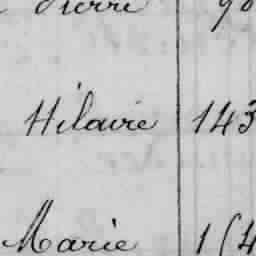 Pierre 90
Hilaire 143
Marie 164